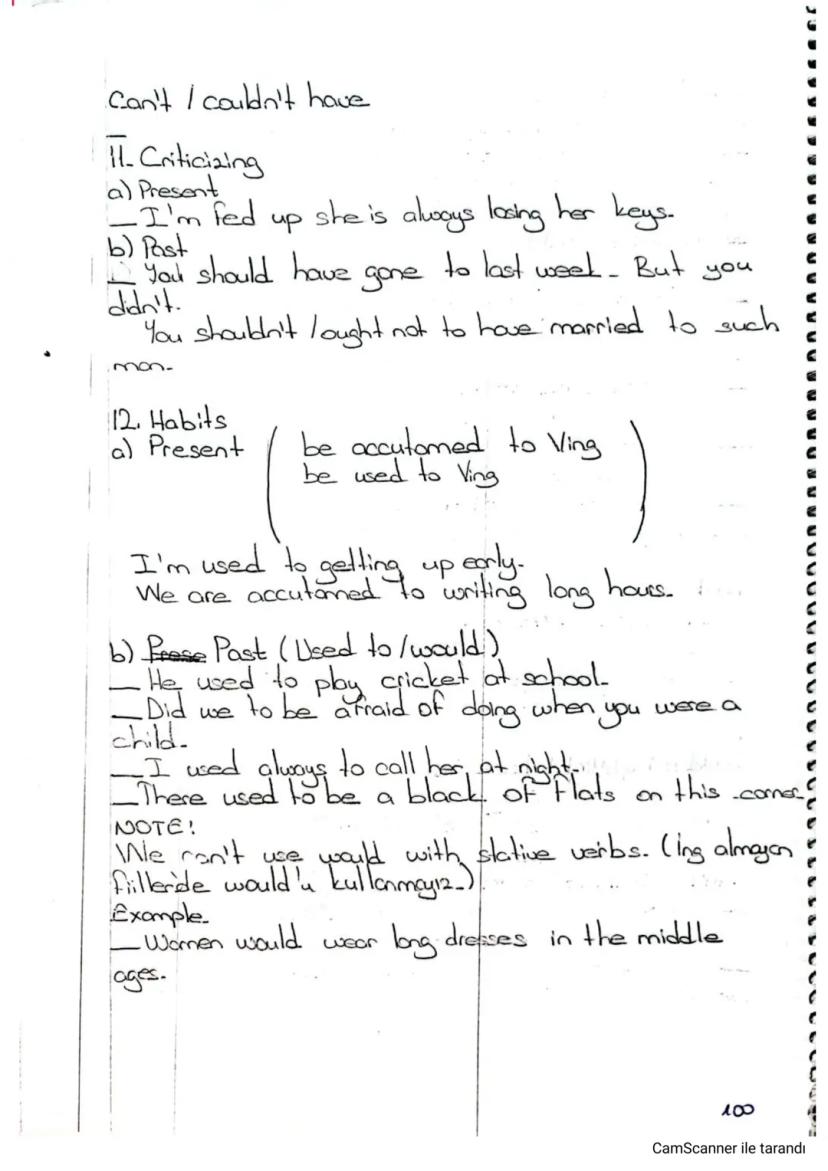 Can't / couldn't have
11- Criticizing
a) Present
— I'm fed up she is always losing her keys.
b) Past
— You should have gone to last week - But you
didn't.
You shouldn't / ought not to have married to such
man-
12. Habits
a) Present
be accutomed to Ving
be used to Ving
I'm used to getting up early-
We are accutomed to writing long hours-
b) Prese Past (Used to / would)
— He used to play cricket at school-
— Did we to be afraid of doing when you were a
child-
— I used always to call her at night-
— There used to be a black of flats on this corner
NOTE!
We can't use would with stative verbs. (ing almayan
fiillerde would'u kullanmayız-)
Example-
— Women would wear long dresses in the middle
ages-
100
CamScanner ile tarandı